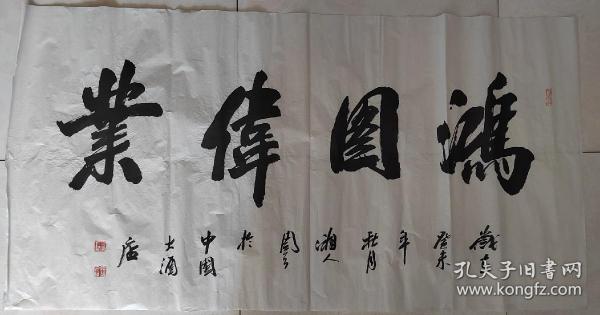 鸿图偉業
歲在
癸未
年
秋月
湘人
周
於
中國
大酒
店
孔夫子旧书网
www.kongfz.com